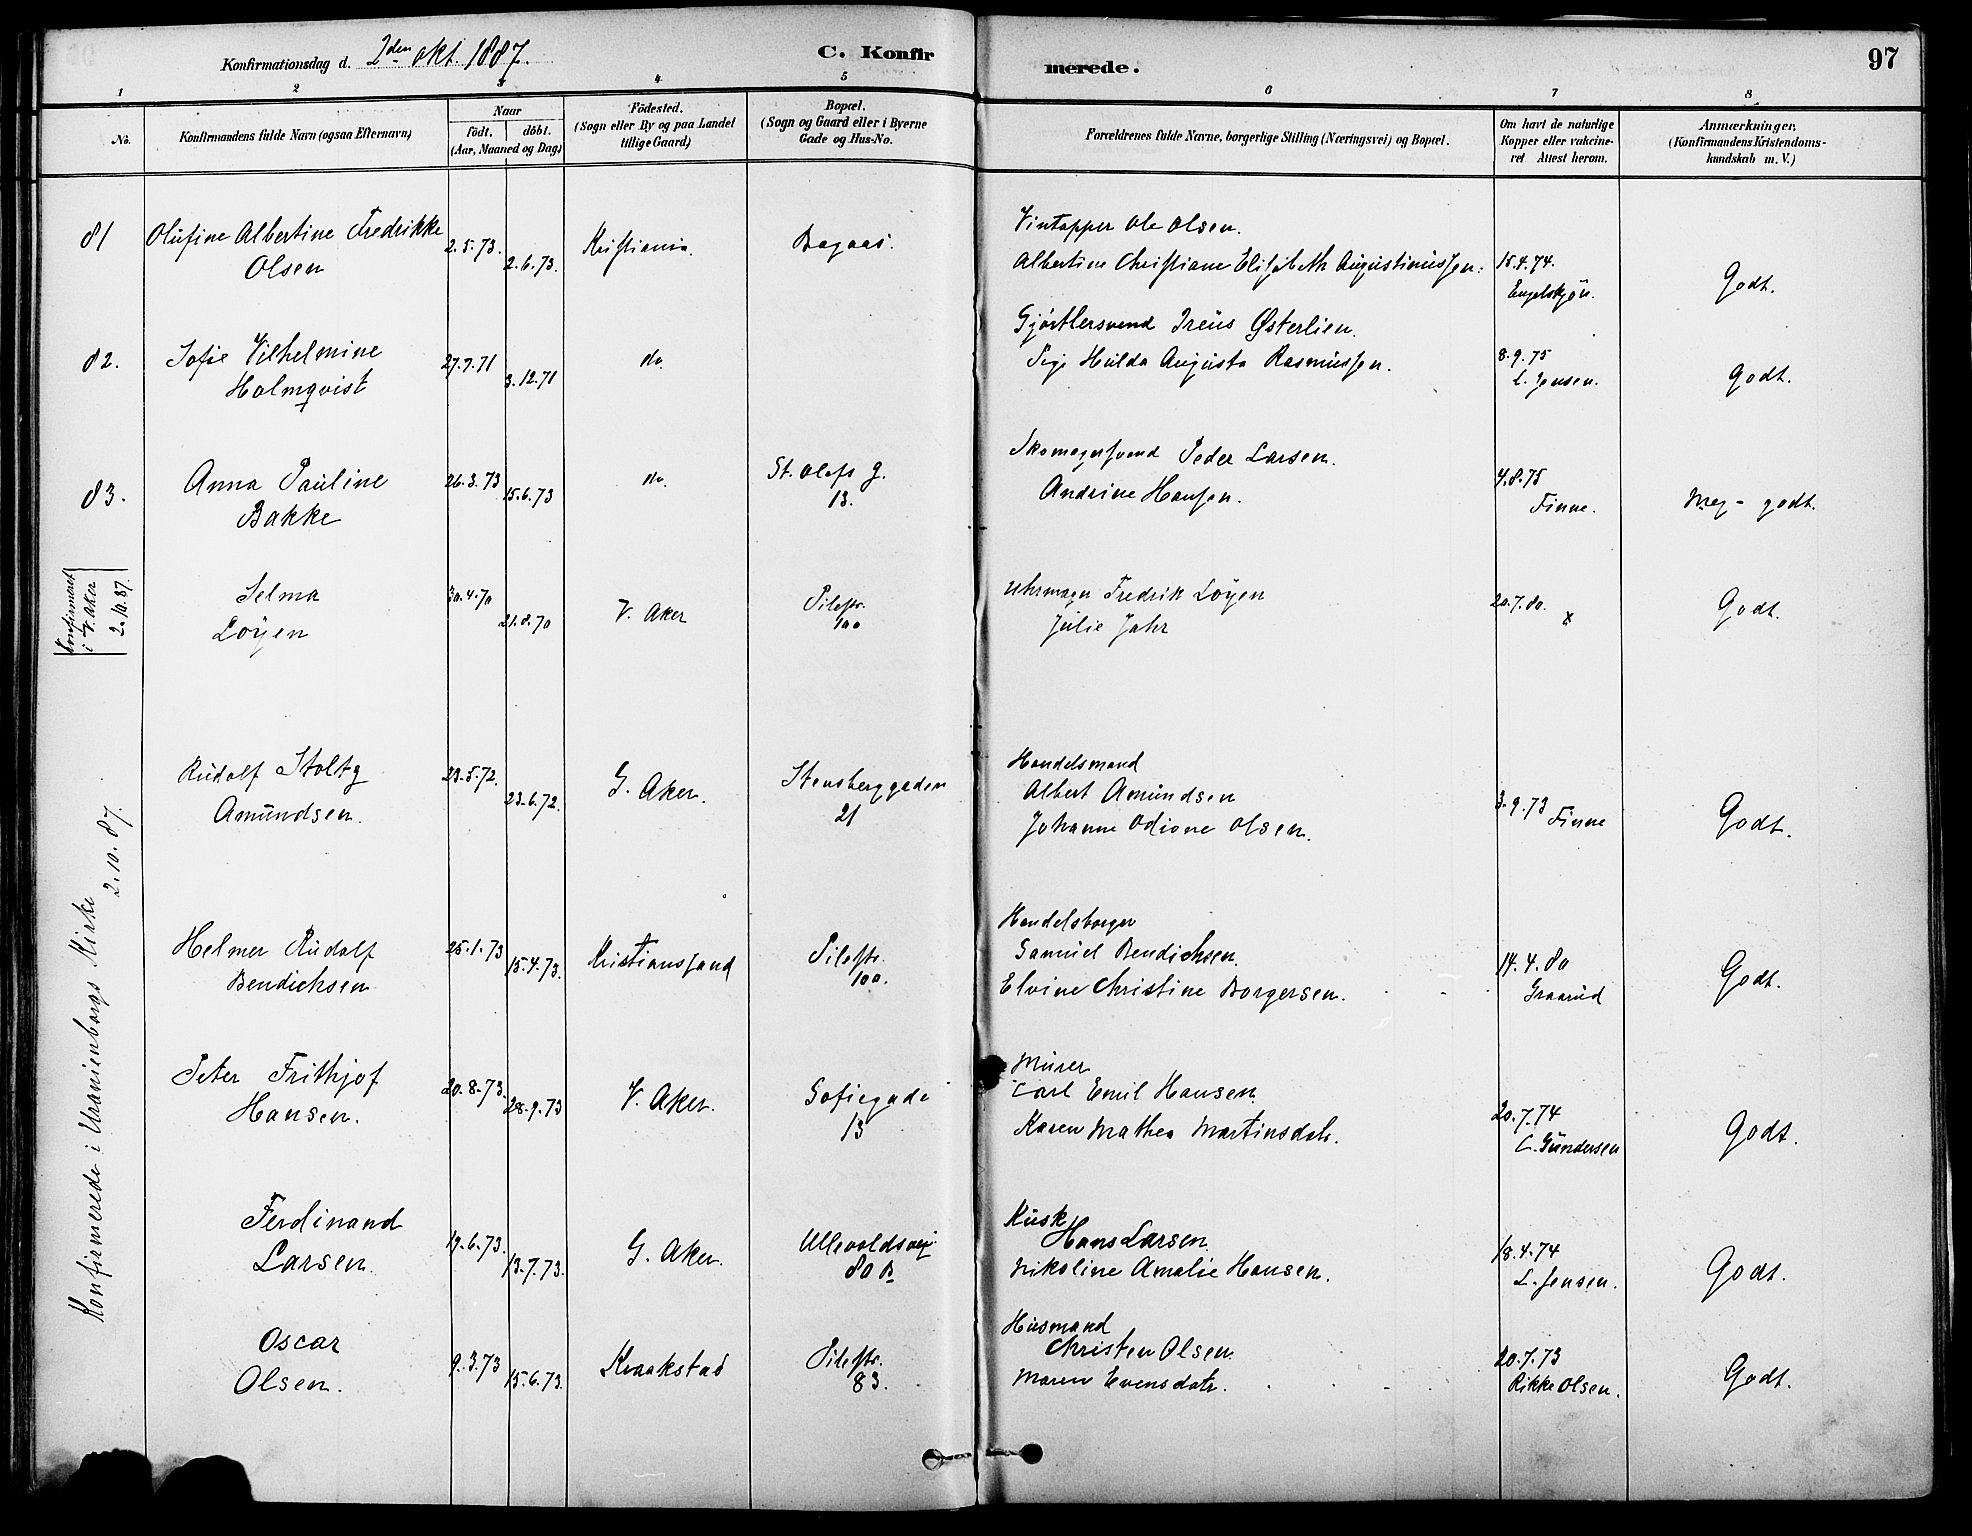 Konfirmationsdag d. 2den okt. 1887.
C. Konfir
merede.
97
1 2 3 4 5 6 7 8
No.
Konfirmandens fulde Navn (ogsaa Efternavn)
Naar
födt. döbt.
(Aar, Maaned og Dag)
Födested.
(Sogn eller By og paa Landet
tillige Gaard)
Bopæl.
(Sogn og Gaard eller i Byerne
Gade og Hus-No.
Forældrenes fulde Navne, borgerlige Stilling (Næringsvei) og Bopæl.
Om havt de naturlige
Kopper eller vakcine-
ret Attest herom.
Anmærkninger.
(Konfirmandens Kristendoms-
kundskab m. V.)
81 Olufine Albertine Fredrikke
Olsen
2.5.73. 2.6.73. Kristiania. Bagaas.
Vintapper Ole Olsen.
Albertine Christiane Elisabeth Augustinussen.
15.4.74.
Engelskjön.
Godt.
82. Sofie Vilhelmine
Holmqvist
27.7.71 3.12.71 do.
Gjörtlersvend Ireus Østerlien.
Pige Hulda Augusta Rasmussen.
8.9.75
L. Jensen.
Godt.
83. Anna Pauline
Bakke
26.3.73 15.6.73 do. St. Olafs g.
13.
Skomagersvend Peder Larsen.
Andrine Hansen.
4.8.75
Finne.
Meg- godt.
Konfirmeret
i V. Aker
2.10.87.
Selma
Löyen
30.4.70 21.8.70 V. Aker Pilestr.
100
Uhrmager Fredrik Löyen
Julie Jahr
20.7.80. x
Godt.
Konfirmerede i Uranienborgs Kirke
2.10.87.
Rudolf Stoltz
Amundsen.
23.5.72. 23.6.72. G. Aker. Stensberggaden
21
Handelsmand
Albert Amundsen
Johanne Odione Olsen.
3.9.73 Finne
Godt.
Helmer Rudolf
Bendichsen
25.1.73 15.4.73. Kristianssand Pilestr.
100.
Handelsborger
Samuel Bendichsen.
Elvine Christine Borgersen.
14.4.80
Graarud
Godt.
Peter Frithjof
Hansen.
20.8.73. 28.9.73 V. Aker. Sofiegade
13
Murer
Carl Emil Hansen.
Karen Mathea Martinsdatr.
20.7.74
C. Gundersen
Godt.
Ferdinand
Larsen.
19.6.73. 13.7.73. G. Aker. Ullevoldsvei
80 B
Kusk
Hans Larsen.
Nikoline Amalie Hansen.
18.4.74
L. Jensen.
Godt.
Oscar
Olsen.
9.3.73 15.6.73. Kraakstad Pilestr.
83.
Husmand
Christen Olsen.
Maren Evensdatr.
20.7.73
Rikke Olsen.
Godt.